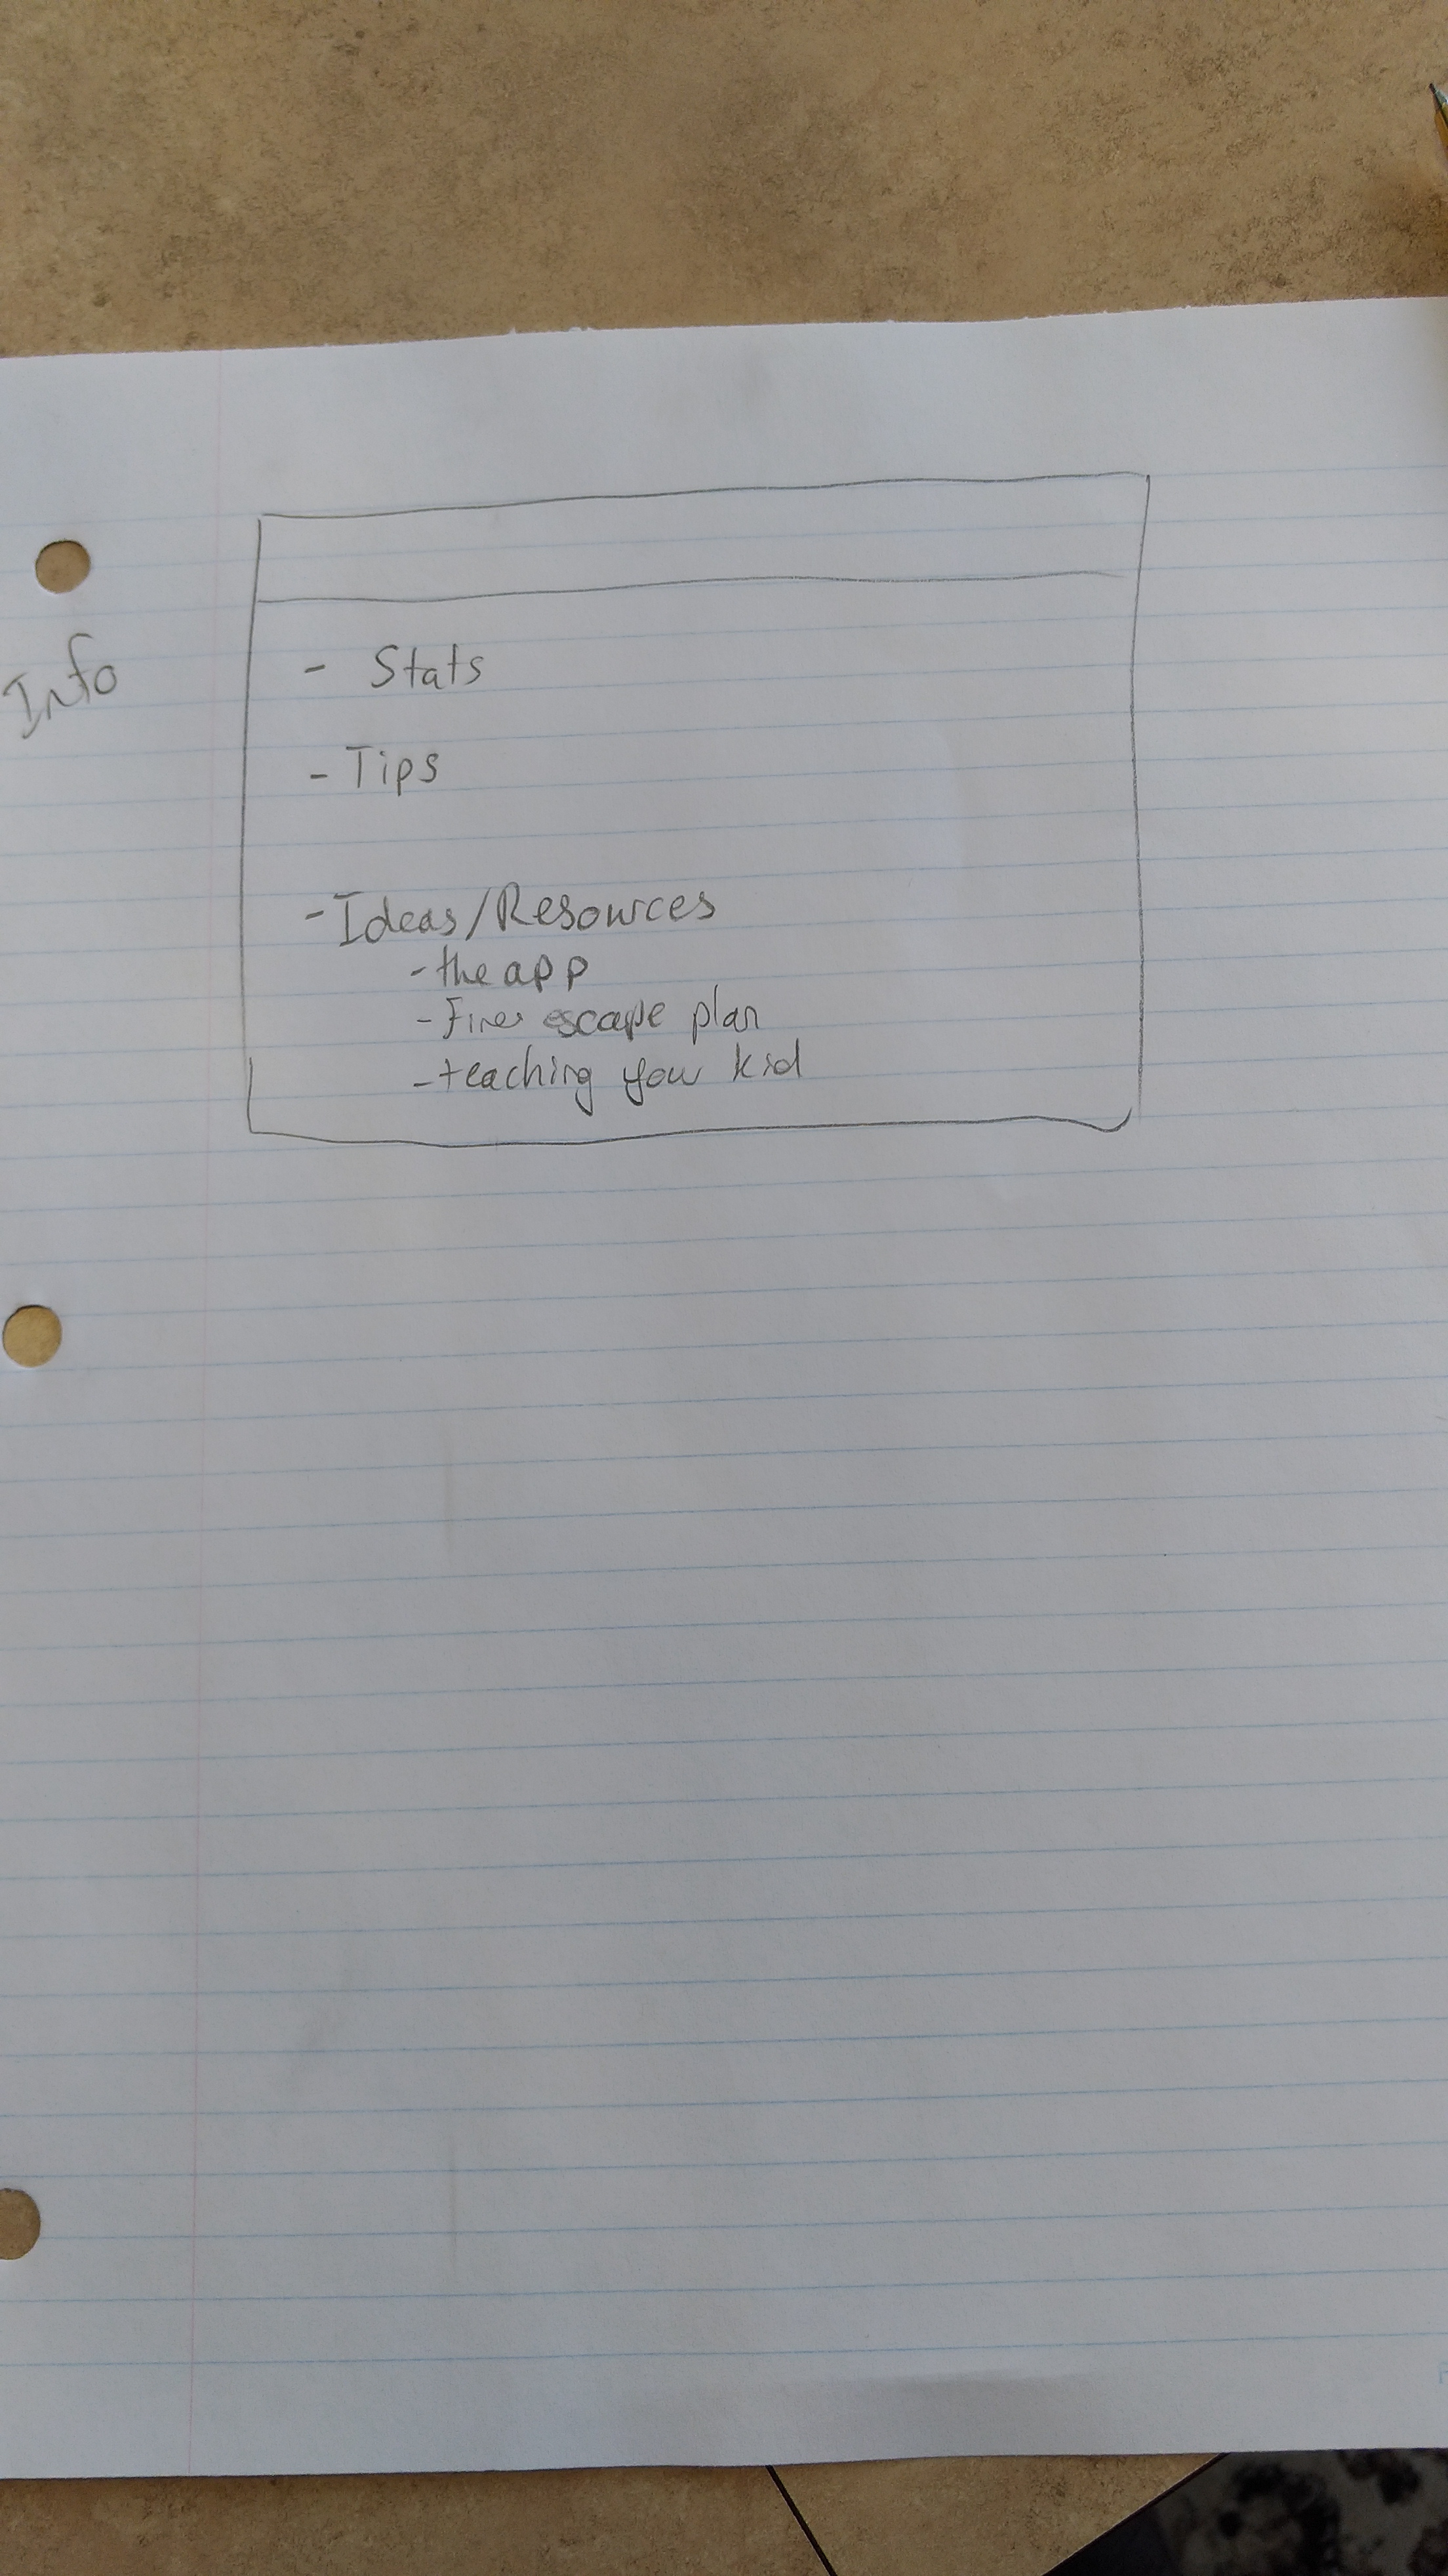 Info
- Stats
- Tips
- Ideas/Resources
- the app
- Fire escape plan
- teaching your kid